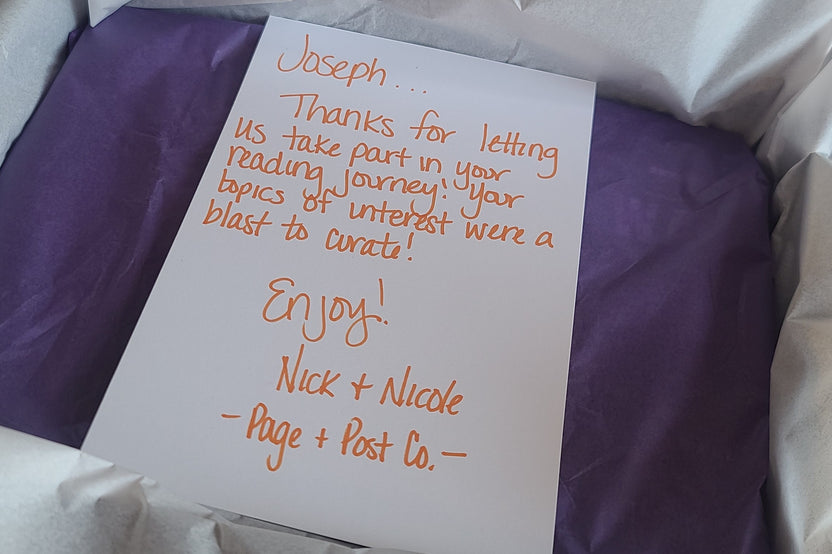 Joseph...
Thanks for letting
us take part in your
reading journey! Your
topics of interest were a
blast to curate!
Enjoy!
Nick + Nicole
- Page + Post Co. -